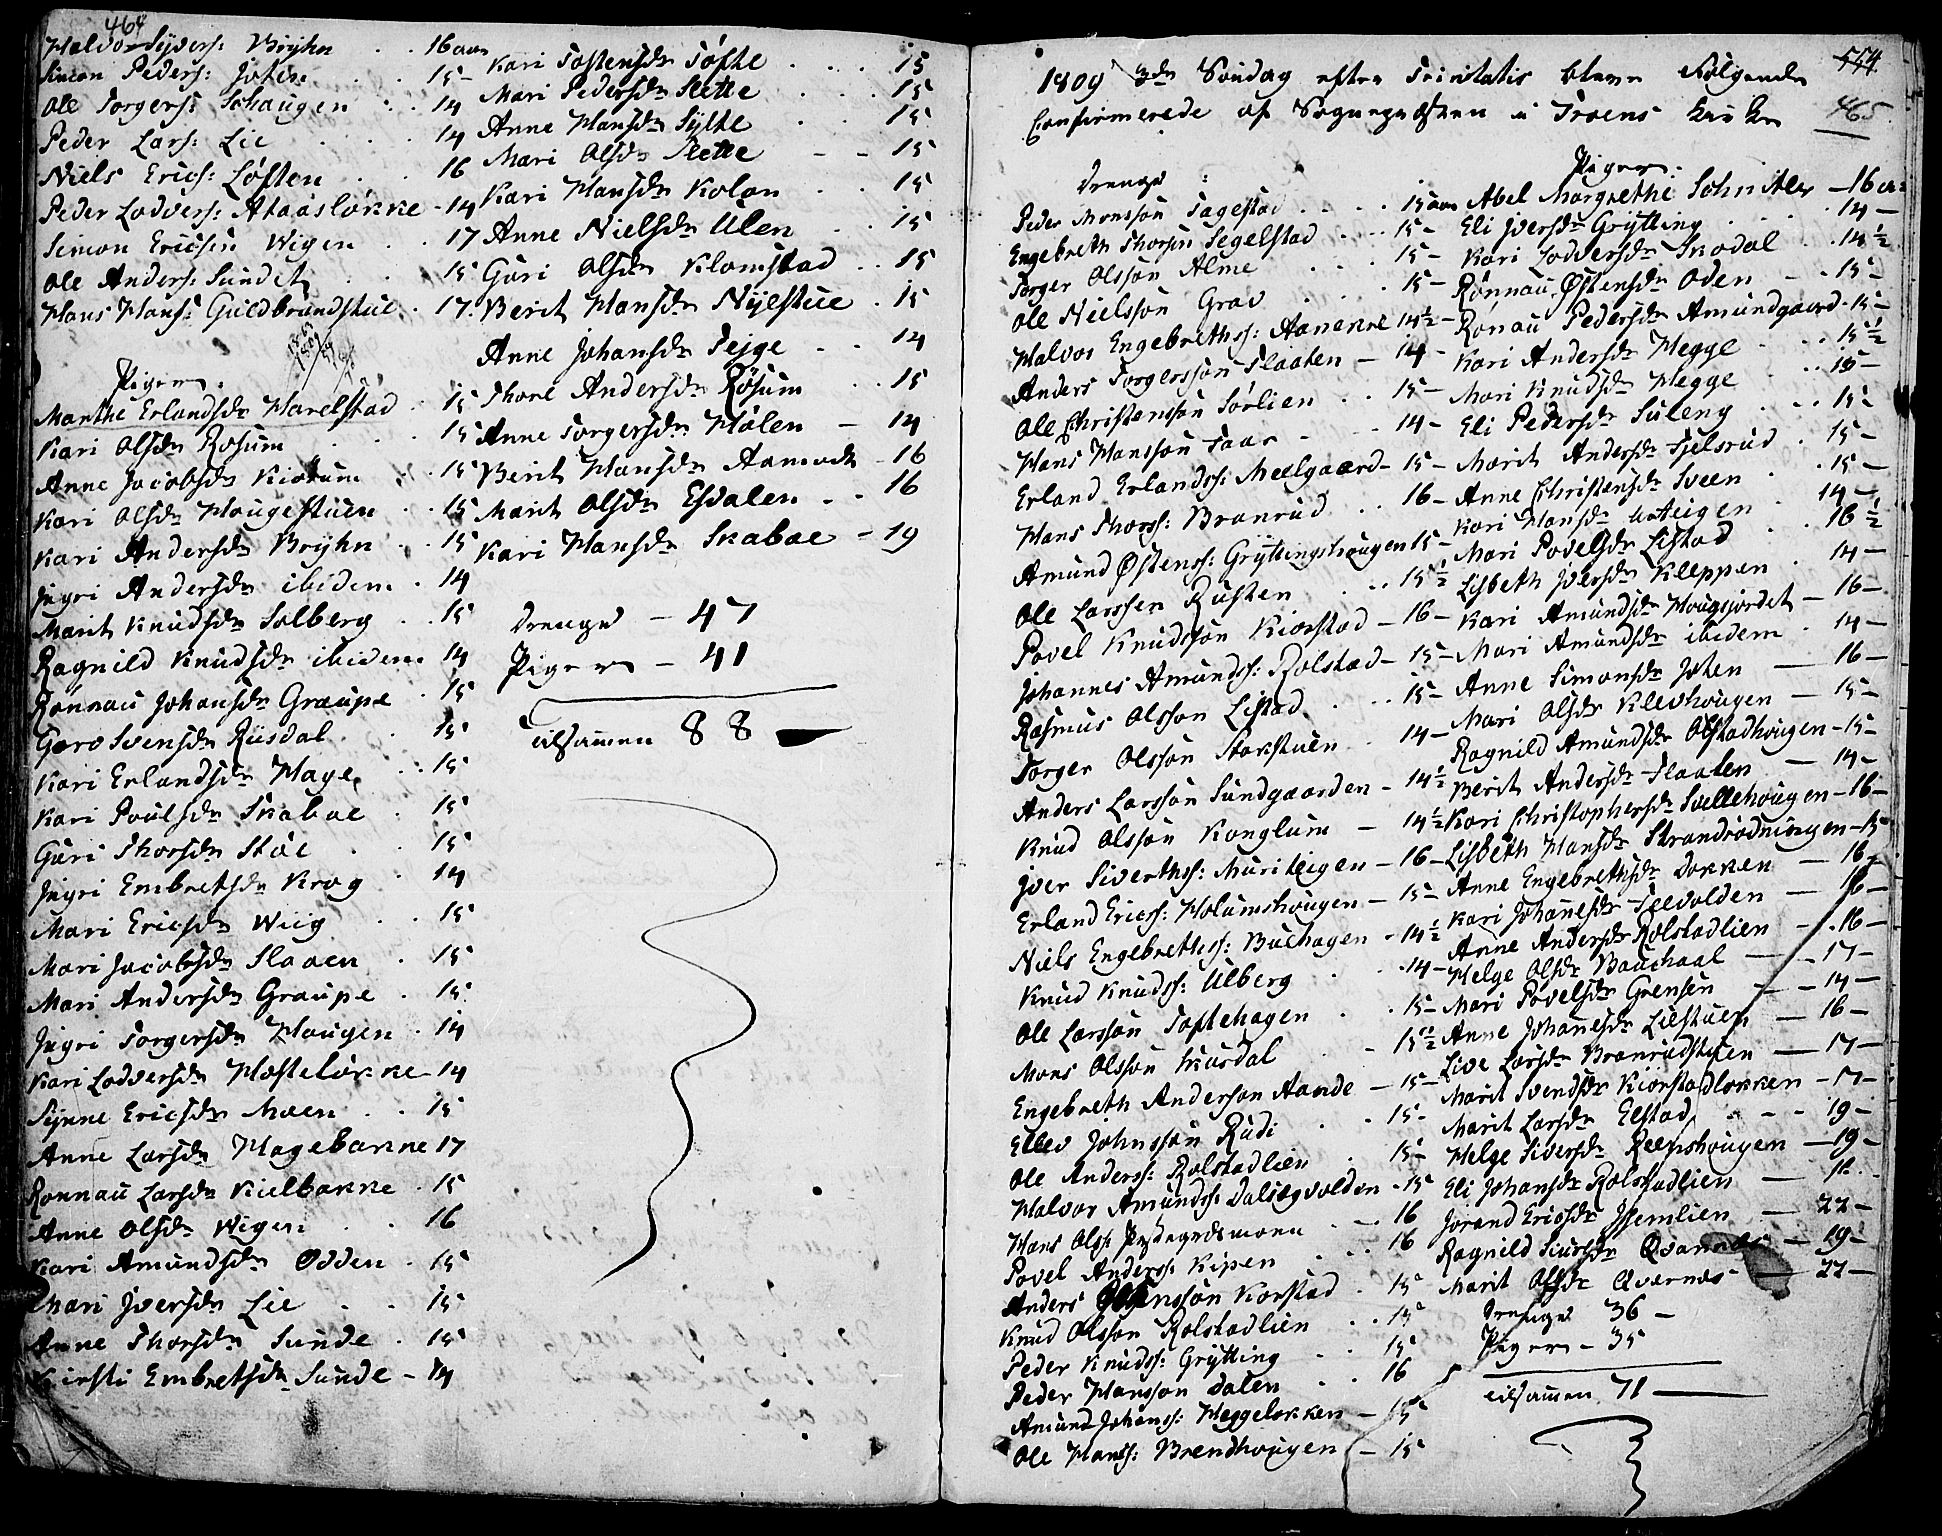 464
Halvor Syvers: Bryhn . . 16 aar
Simon Peders: Joten . . 15 -
Ole Torgers: Schaugen . . 14
Peder Lars: Lie . . . 14
Niels Erics: Løften . . 16
Peder Lodvers: Ataasløkke - 14
Simon Ericsen Wigen . . 17
Ole Anders: Sundet . . 15
Hans Hans: Guldbrandstue . 17
Piger.
Marthe Erlandsdr Harelstad . 15
Kari Olsdr Rosum . . . 15
Anne Jacobsdr Kiorum . . 15
Kari Olsdr Haugestuen . . 15
Kari Andersdr Bryhn . . 15
Ingri Andersdr ibidem . 14
Marit Knudsdr Solberg . . 15
Ragnild Knudsdr ibidem . 14
Rønnau Johansdr Graupe . 15
Goro Svensdr Rusdal . . 15
Kari Erlandsdr Hage . . 15
Kari Poulsdr Skaboe . 15
Guri Thorsdr Støe . . 15
Ingri Embretsdr Krog . 14
Mari Ericsdr Wiig . . 15
Mari Jacobsdr Slaaen . 15
Mari Andersdr Graupe . 15
Ingri Torgersdr Haugen . 14
Kari Lodversdr Hosteløkke 14
Synne Ericsdr Moen . . 15
Anne Larsdr Hagebakke 17
Rønnau Larsdr Kielbakke . 15
Anne Olsdr Wigen . . 16
Kari Amundsdr Odden . 15
Mari Iversdr Lie . . 15
Anne Thorsdr Sunde . 15
Kirsti Embretsdr Sunde - 14
Kari Tostensdr Tofte . . . 15
Mari Pedersdr Slette . . . 15
Anne Hansdr Sylte . . 15
Mari Olsdr Slette - - 15
Kari Hansdr Koløn . . 15
Anne Nielsdr Ulen . . 15
Guri Olsdr Klomstad . . 15
Berit Hansdr Nyestue . 15
Anne Johansdr Teige . . 14
Thore Andersdr Røsum . . 15
Anne Torgersdr Holen - 14
Berit Hansdr Aamodt - 16
Marit Olsdr Esdalen . . 16
Kari Hansdr Skaboe - 19
Drenge - 47
Piger - 41
tilsammen 88
554
465
1809 3de Søndag efter Trinitatis bleve følgende
Confirmerede af Sognepræsten i Froens Kirke
Drenge :
Peder Monsson Fagestad . . . 15 aar
Engebreth Thorsen Segelstad . . 15 -
Torger Olsson Alme . . . 15 -
Ole Nielsson Grav . . . 15 -
Halvor Engebrethss: Aanekre 14½ -
Anders Torgersson Flaaten - 14 -
Ole Christensson Sørlien . . 15 -
Hans Hansson Faar - . . 14 -
Erland Erlandss: Meelgaard - 15 -
Hans Thorss: Branrud . . 16 -
Amund Østenss: Gryttingshougen 15 -
Ole Larssen Rusten . . 15½
Povel Knudsson Kiorstad - 16 -
Johannes Amundss: Rolstad - 15 -
Rasmus Olsson Listad . . . 15 -
Torger Olsson Storstuen . 14 -
Anders Larsson Sundgaarden - 14½
Knud Olsson Konglum - 14½
Iver Siverthss: Muriteigen - 16 -
Erland Ericss: Holumshougen - 15 -
Niels Engebrethss: Buehagen - 14½
Knud Knudss: Ulberg . . 14 -
Ole Larsson Toftehagen . . 15 -
Mons Olsson Skurdal - 15½
Engebreth Anderson Aande - 15 -
Ellev Johnsson Rudi . . 15 -
Ole Anderss: Rolstadlien . 15 -
Halvor Amundss: Dalsegvolden - 15
Hans Olss: . - 16
Povel Anderss: Kipen . . . 16
Anders Korstad . 15
Knud Olsson Rolstadlien . . 15
Peder Knudss: Grytting . . 15
Peder Hansson Dalen . . 16
Amund Johanss: Heggeløkken - 15
Ole Hanss: Brendhougen - 15
Piger.
Abel Margrethe Schnitler - 16 aar
Eli Iversdr Grytting . . . 14 -
Kari Joddersdr Skodal . . 14½
Rønnau Østensdr Oden - . . 15 -
Rønau Pedersdr Amundgaard . 15 -
Kari Andersdr Hegge . . . 15½
Mari Knudsdr Hegge . . 15 -
Eli Pedersdr Suleng . . . 15 -
Marit Andersdr Fjelsrud . 15 -
Anne Christensdr Sveen . . 15 -
Kari Hansdr Uteigen . . 14 -
Mari Povelsdr Listad . . 16½
Lisbeth Iversdr Kleppen . 14 -
Kari Amundsdr Hougsjordet - 16 -
Mari Amundsdr ibidem . 14 -
Anne Simonsdr Joten - 16 -
Mari Olsdr Klevhougen - 15 -
Ragnild Amundsdr Olstadhougen - 15 -
Berit Andersdr Flaaten - 14 -
Kari Christophersdr Svellehougen - 16 -
Lisbeth Hansdr Strandrødningen - 15
Anne Engebrethsdr Dokken - 16 -
Kari Johanesdr Teevolden - 16 -
Anne Andersdr Rolstadlien - . 16 -
Helge Olsdr Bauchaal - . 17 -
Mari Povelsdr Grensen - - 14 -
Anne Johanesdr Liestuen - 16 -
Live Larsdr Branrudstuen - 17 -
Marit Svendsdr Kiorstadløkken - 17 -
Marit Larsdr Elstad - - - 19 -
Helge Siversdr Reepshougen - 19 -
Eli Johansdr Rolstadlien - 16 -
Jorand Ericsdr Isemlien - 22 -
Ragnild Siursdr Qvarnæs - 19 -
Marit Olsdr Qvernæs - 22 -
Drenge 36 -
Piger - 35
tilsammen 71